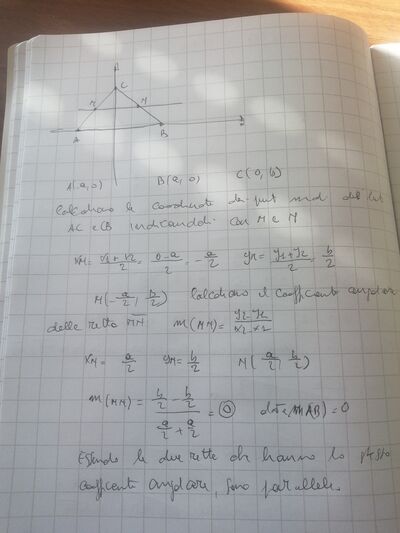 C
M N
A B
A(-a, 0) B(a, 0) C(0, b)
Calcoliamo le coordinate dei punti medi dei lati
AC e CB indicandoli con M e N
xM = x1 + x2 / 2 = 0 - a / 2 = - a/2 yM = y1 + y2 / 2 = b/2
M(- a/2 ; b/2) Calcoliamo il coefficiente angolare
delle rette MN m(MN) = y2 - y1 / x2 - x1
xN = a/2 yN = b/2 N(a/2 ; b/2)
m(MN) = b/2 - b/2 / a/2 + a/2 = 0 m(AB) = 0
Essendo le due rette che hanno lo stesso
coefficiente angolare, sono parallele.